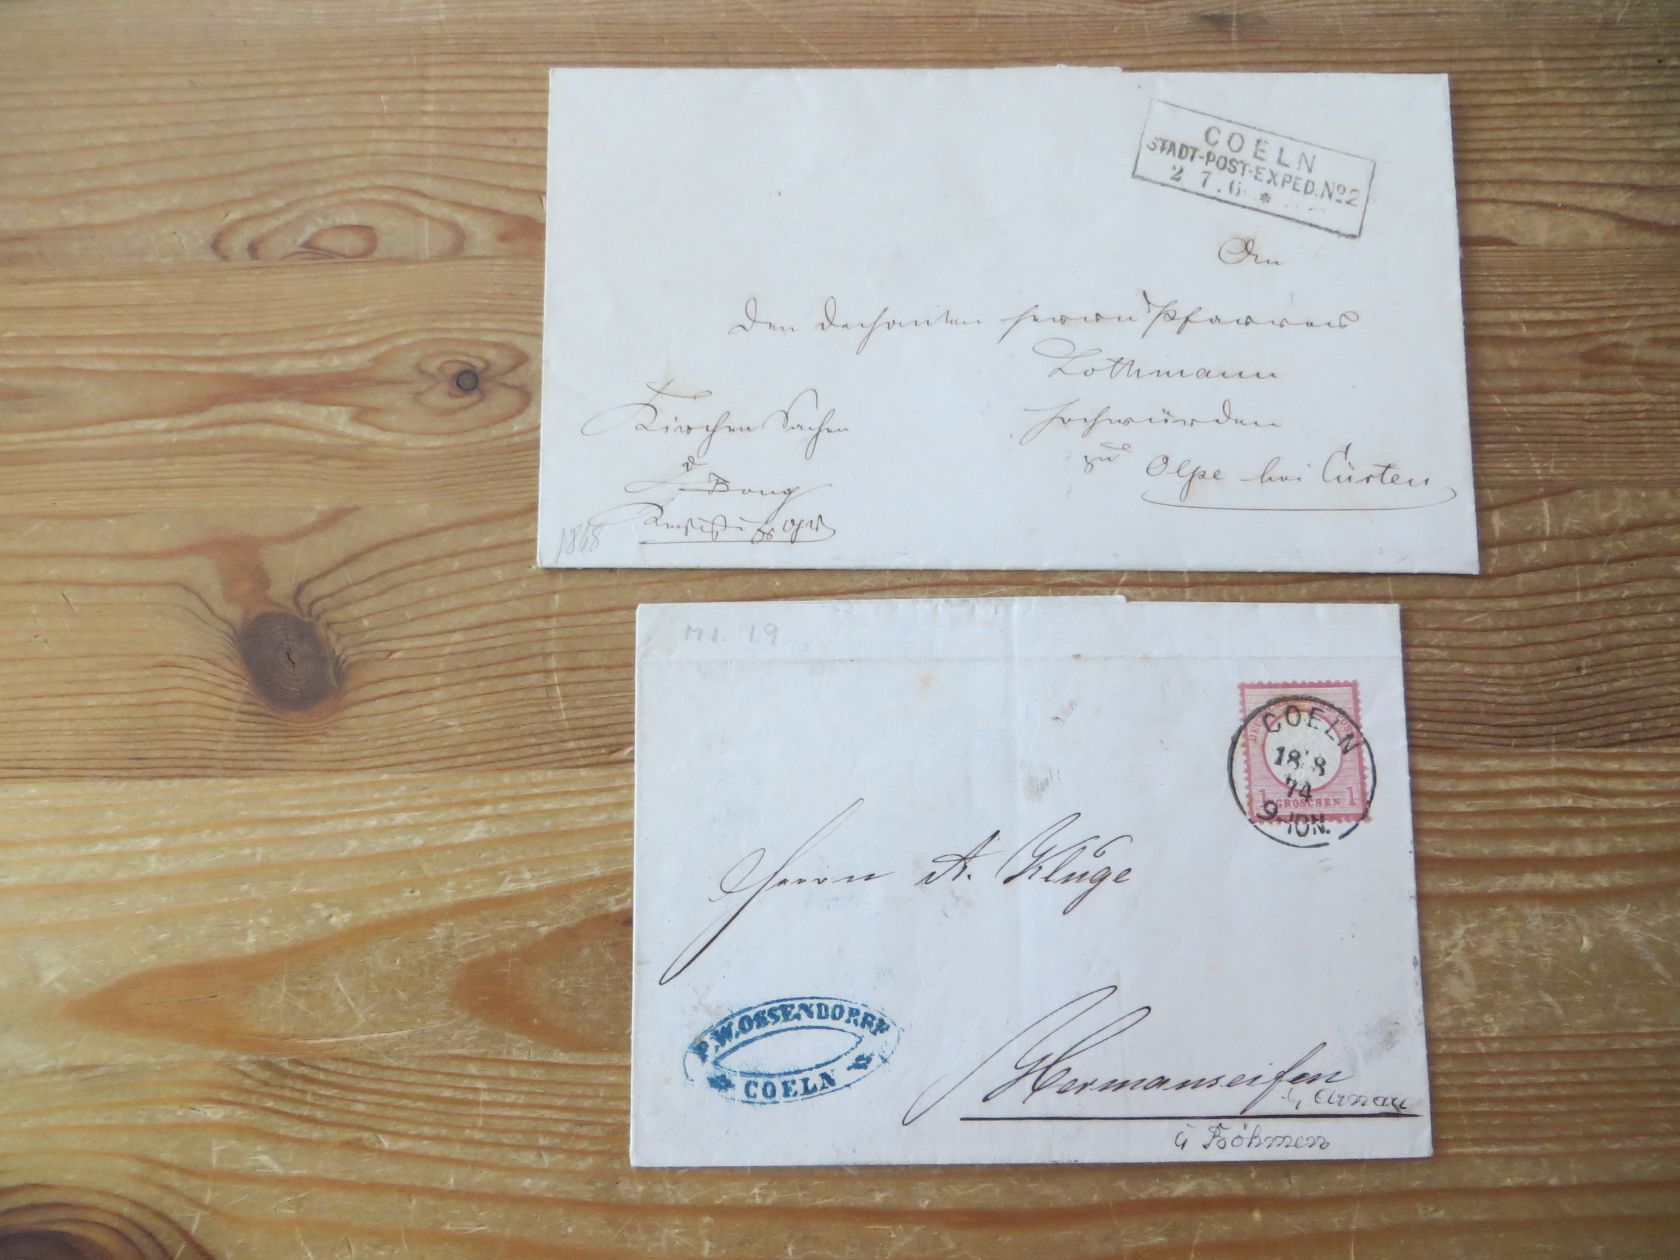 COELN
STADT-POST-EXPED. No 2
2 7. 6 *
An
den dechanten Herrn Pfarrer
Lothmann
Hochwürden
zu Olpe bei Cürten
Kirchen Sachen
1868
Mi. 19
COELN
18 8
74
9-10N.
1 GROSCHEN 1
Herrn A. Kluge
P.W. OSSENDORFF
COELN
Hermanseifen
b/ Arnau
i Böhmen